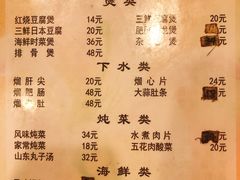 煲类
红烧豆腐煲 14元 三鲜
三鲜日本豆腐 20元 肥肠 煲
海鲜时菜煲 24元 杂
排骨煲 48元
下水类
熘肝尖 20元 熘心片 24元
熘肥肠 48元 大蒜肚条
熘肚 48元
炖菜类
风味炖菜 34元 水煮肉片
家常炖菜 18元 五花肉酸菜 20元
山东丸子汤 32元
海鲜类